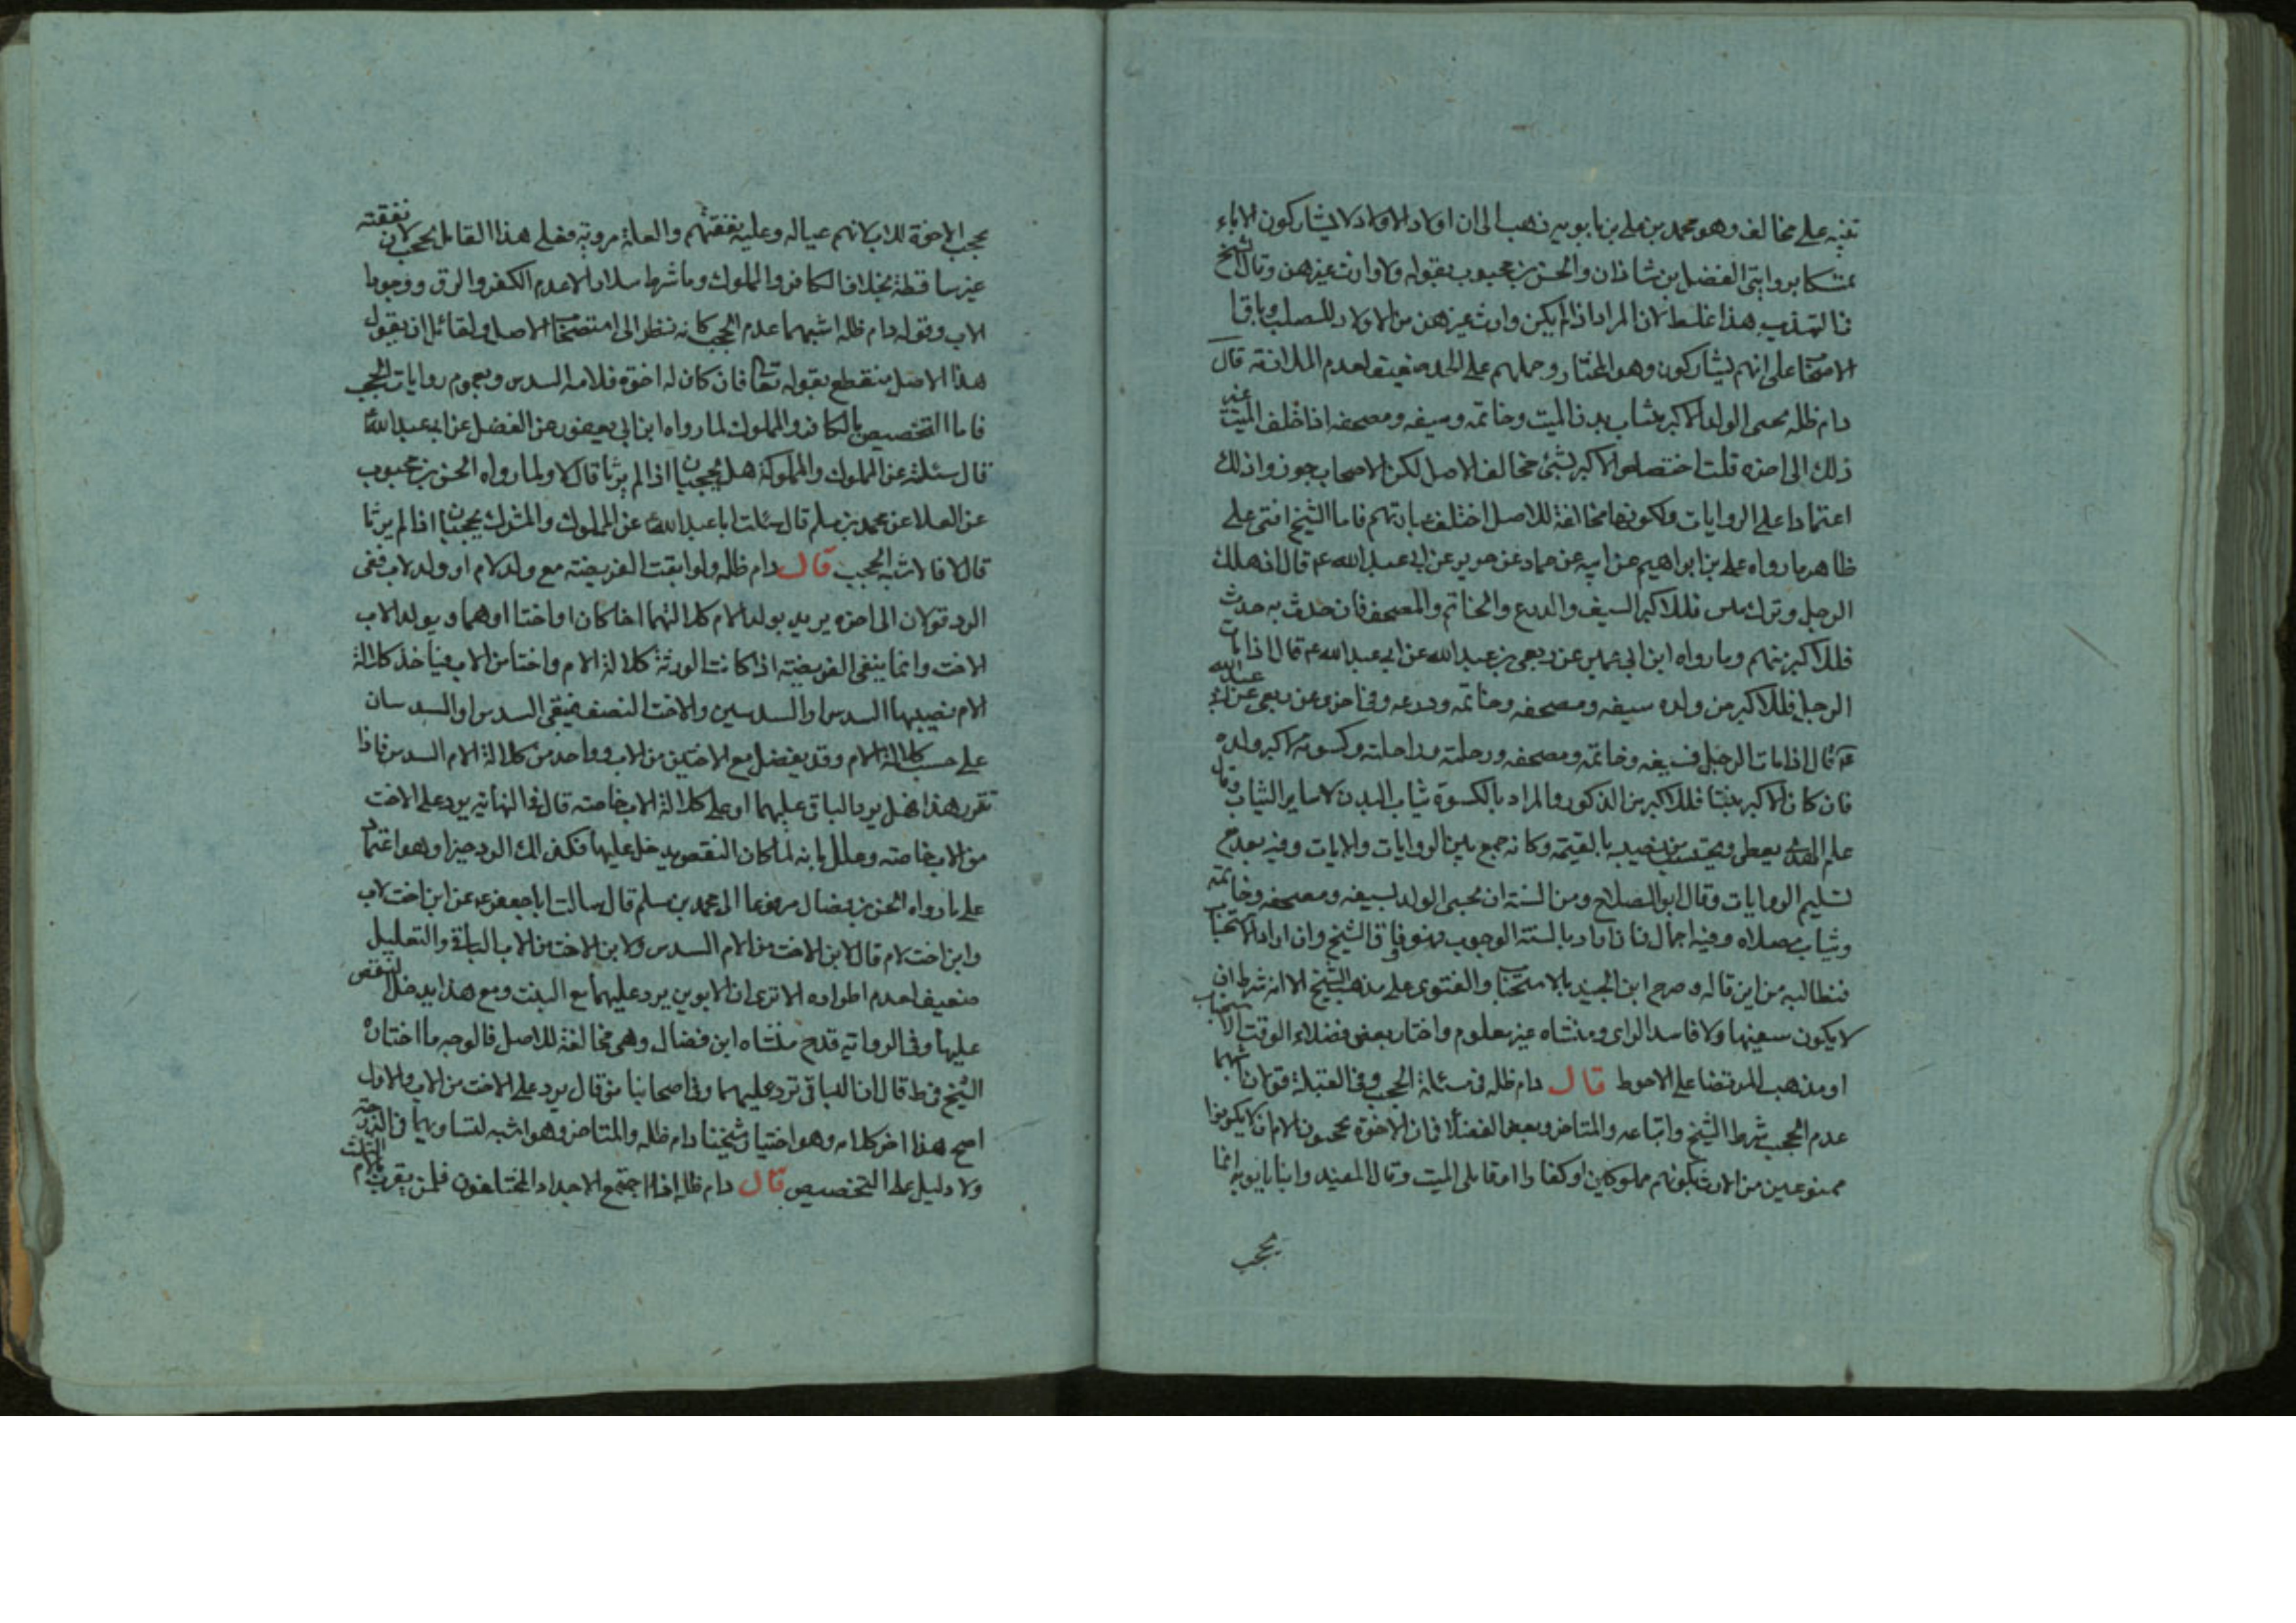 تنبه على مخالف وهو محمد بن على بن بابويه ذهب الى ان اولاد الاولاد لا يشاركون الاباء
تمسكا بروايتى الفضل بن شاذان والحسن بن محبوب بقوله ولا وارث غيرهن وقال الشيخ
فى التهذيب هذا غلط لان المراد اذا لم يكن وارث غيرهن من الاولاد للصلب وباقى
الاصحاب على انهم يشاركون وهو المختار وحملهم على الجد ضعيف لعدم الملازمة قال
دام ظله يحبى الولد الاكبر بثياب بدن الميت وخاتمه وسيفه ومصحفه اذا خلف الميت غير
ذلك الى اخره قلت اختصاص الاكبر بشئ مخالف الاصل لكن الاصحاب جوزوا ذلك
اعتمادا على الروايات ولكونها مخالفة للاصل اختلف عباراتهم فاما الشيخ افتى على
ظاهر ما رواه على بن ابراهيم عن ابيه عن حماد عن حريز عن ابى عبد الله ع قال اذ هلك
الرجل وترك بنين فللاكبر السيف والدرع والخاتم والمصحف فان حدث به حدث
فللاكبر منهم وما رواه ابن ابى عمير عن ربعى بن عبد الله عن ابى عبد الله ع قال اذا مات
الرجل فللاكبر من ولده سيفه ومصحفه وخاتمه ودرعه وفى اخرى عن ربعى عن ابى عبد الله
ع قال اذا مات الرجل فسيفه وخاتمه ومصحفه ورحله وراحلته وكسوته لاكبر ولده
فان كان الاكبر بنتا فللاكبر من الذكور والمراد بالكسوة ثياب البدن لا ساير الثياب وقال
علم الهدى يعطى ويحتسب من نصيبه بالقيمة وكانه جمع بين الروايات والايات وفيه بعد مع
تسليم الروايات وقال ابو الصلاح ومن السنة ان يحبى الولد بسيفه ومصحفه وخاتمه
وثياب مصلاه وفيه اجمال فان اراد بالسنة الوجوب فهو وفاق الشيخ وان اراد الاستحباب
فنطالبه من اين قاله وصرح ابن الجنيد بالاستحباب والفتوى على مذهب الشيخ الا انه شرط ان
لا يكون سفيها ولا فاسد الراى ومنشاه غير معلوم واختار بعض فضلاء الوقت الاستحباب
او مذهب المرتضى على الاحوط قال دام ظله فى مسئلة الحجب وفى القتلة قولان اشبههما
عدم الحجب شرط الشيخ واتباعه والمتاخر وبعض الفضلا فى ان الاخوة يحجبون الام ان لا يكونوا
ممنوعين من الارث بكونهم مملوكين او كفارا او قاتلى الميت وقال المفيد وابنا بابويه انما
يحجب
يحجب الاخوة للاب لانهم عياله وعليه نفقتهم والعلة مروية فعلى هذا القاتل يحجب لان نفقته
غير ساقطة بخلاف الكافر والمملوك وما شرط سلار الا عدم الكفر والرق ووجود
الاب وقوله دام ظله اشبههما عدم الحجب كانه نظر الى استصحاب الاصل ولقائل ان يقول
هذا الاصل منقطع بقوله تعالى فان كان له اخوة فلامه السدس وبعموم روايات الحجب
فاما التخصيص بالكافر والمملوك لما رواه ابن ابى يعفور عن الفضل عن ابى عبد الله ع
قال سئلته عن المملوك والمملوكة هل يحجبان اذا لم يرثا قال لا ولما رواه الحسن بن محبوب
عن العلا عن محمد بن مسلم قال سئلت ابا عبد الله ع عن المملوك والمشرك يحجبان اذا لم يرثا
قال لا فالاشبه الحجب قال دام ظله ولو ابقت الفريضة مع ولد لام او ولد لاب ففى
الرد قولان الى اخره يريد بولد الام كلالتها اخا كان او اختا او هما ويولد الاب
الاخت وانما ينفى الفريضة اذا كانت الورثة كلالة الام واختا من الاب فياخذ كلالة
الام نصيبها السدس او السدسين والاخت النصف فيبقى السدس او السدسان
على حسب كلالة الام وقد يفضل مع الاختين من الاب وواحد من كلالة الام السدس فاذا
تقرر هذا فهل يرد الباقى عليهما او على كلالة الاب خاصة قال فى النهاية يرد على الاخت
من الاب خاصة وعلل بانه لما كان النقص يدخل عليها فكذلك الرد جبرا وهو اعتماد
على ما رواه الحسن بن فضال مرفوعا الى محمد بن مسلم قال سالت ابا جعفر ع عن ابن اخت لاب
وابن اخت لام قال لابن الاخت من الام السدس ولابن الاخت من الاب الباقى والتعليل
ضعيف لعدم اطراده الا ترى ان الابوين يرد عليهما مع البنت ومع هذا يدخل النقص
عليها وفى الرواية قدح منشاه ابن فضال وهى مخالفة للاصل فالوجه ما اختاره
الشيخ فى ط قال ان الباقى ترد عليهما وفى اصحابنا من قال يرد على الاخت من الاب والاول
اصح هذا اخر كلامه وهو اختيار شيخنا دام ظله والمتاخر وهو اشبه لتساويهما فى الدرجة
ولا دليل على التخصيص قال دام ظله اذا اجتمع الاجداد المختلفون فلمن يقرب بالام الثلث